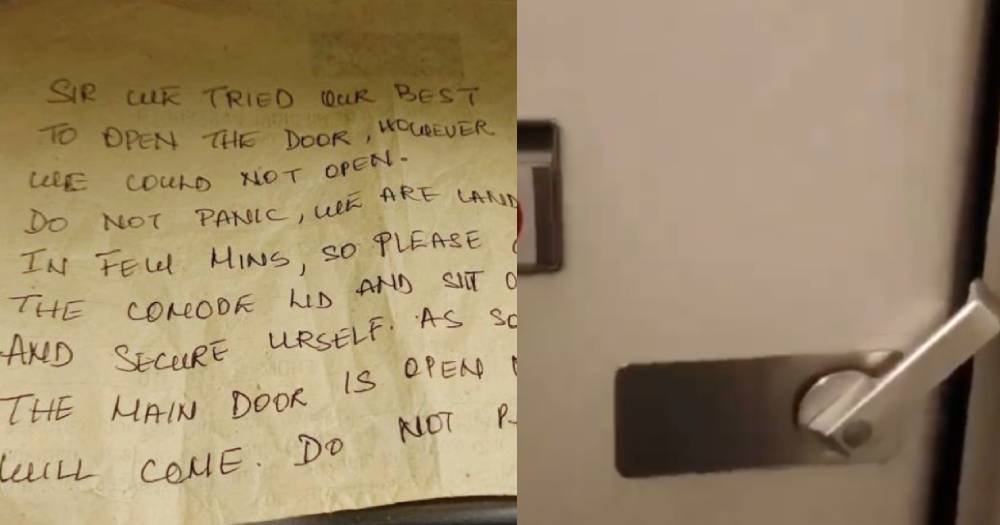 SIR WE TRIED OUR BEST
TO OPEN THE DOOR, HOWEVER
WE COULD NOT OPEN.
DO NOT PANIC, WE ARE LAND
IN FEW MINS, SO PLEASE
THE COMODE LID AND SIT O
AND SECURE URSELF. AS SO
THE MAIN DOOR IS OPEN
WILL COME. DO NOT P